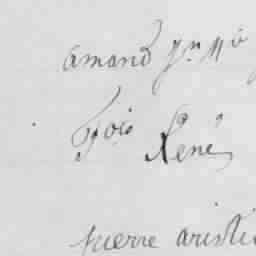 amand Jn Mie
fçois René
pierre aristi